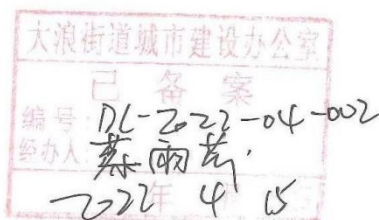 大浪街道城市建设办公室
已备案
编号：DL-2022-04-002
经办人：蔡雨
2022年4 15